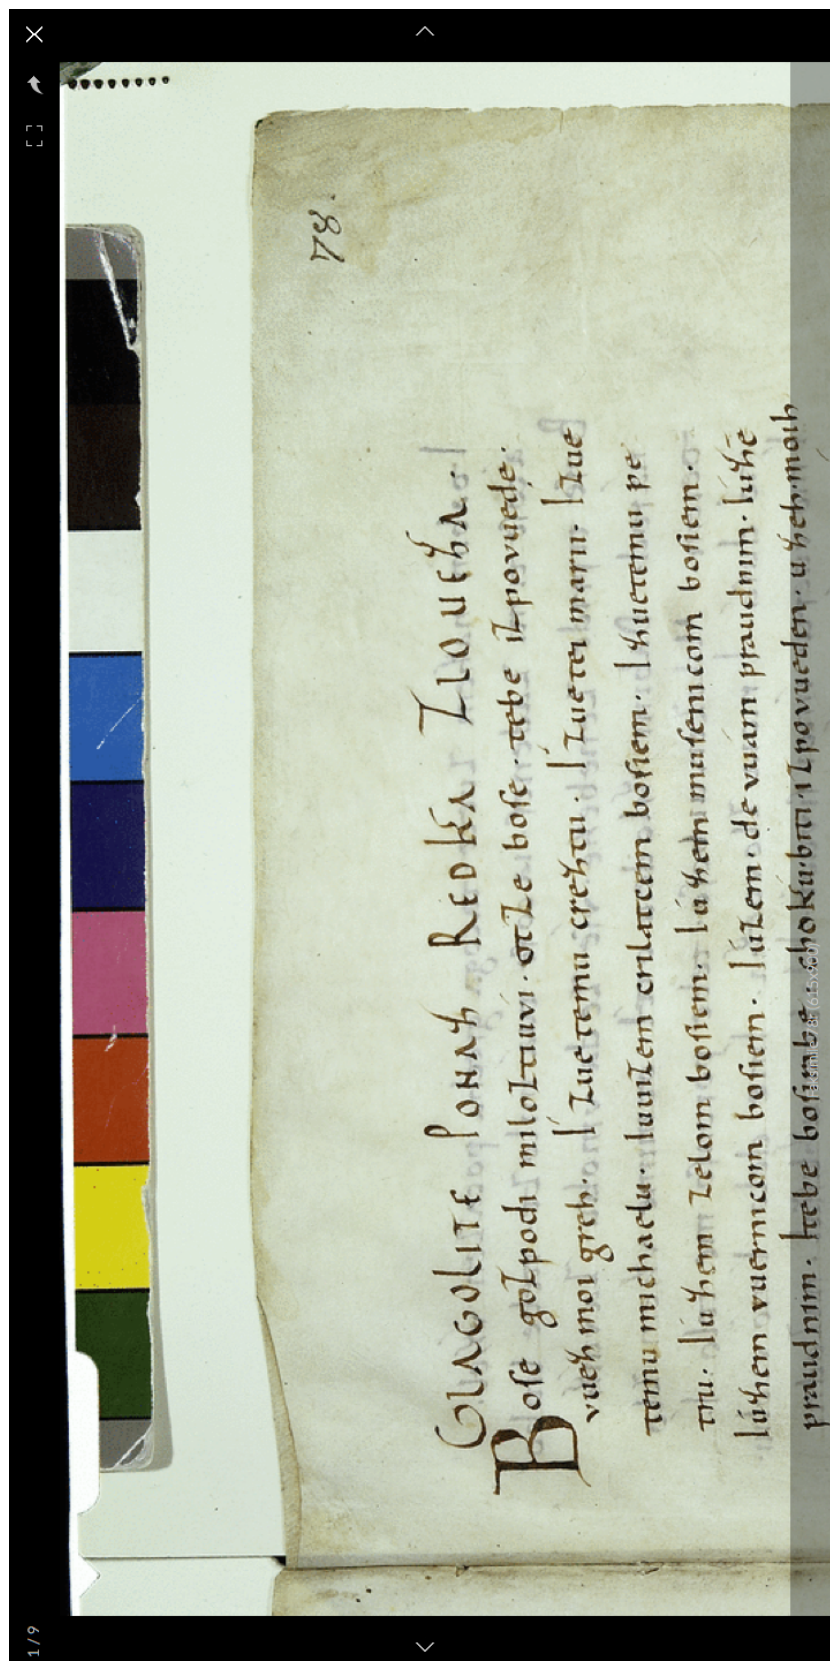 78.
GLAGOLITE PONAZ REDKA ZLOUEZA.
Bose gozpodi miloztiuvi. otze bose. tebe izpovuede.
vuez moi greh. I zuetemu creztu. I zuetei marii. I zue
temu michaelu. Iuuizem crilatcem bosiem. I zuetemu pe
tru. I uzem zelom bosiem. I uzem musenicom bosiem.
I uzem vuernicom bosiem. I uzem devuam praudnim. I uzē
praudnim. I tebe bosi rabe choku biti izpovueden. uzeh moih
1/9